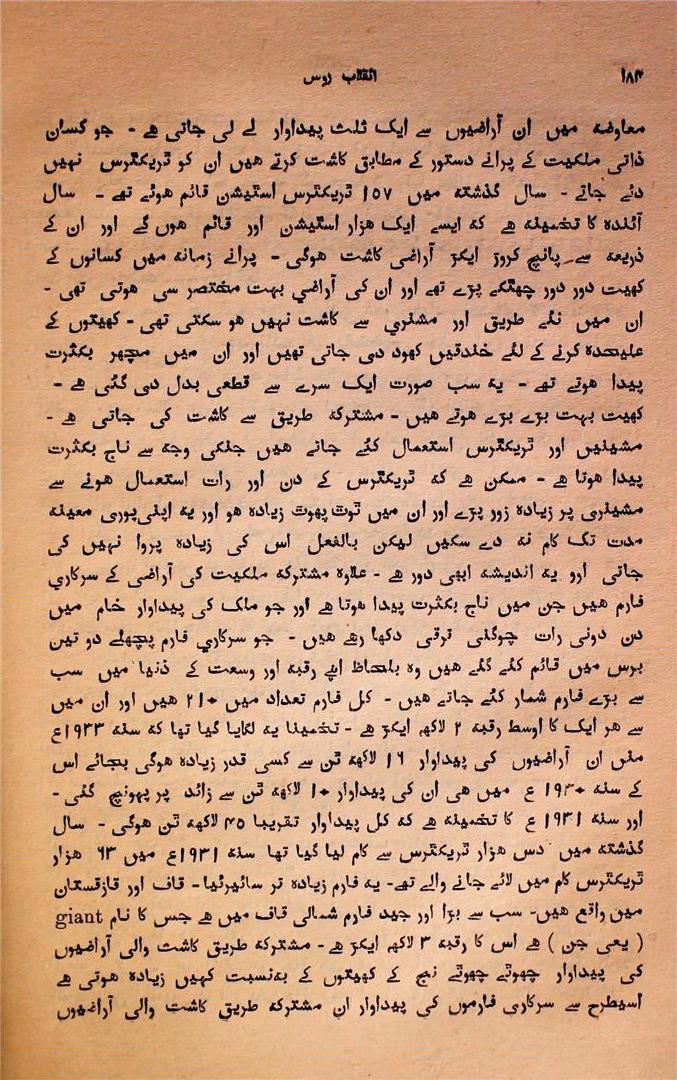 ۱۸۳
انقلاب روس
معاوضہ میں ان آراضیوں سے ایک ثلث پیداوار لے لی جاتی ھے - جو کسان
ذاتی ملکیت کے پرانے دستور کے مطابق کاشت کرتے ھیں ان کو ٹریکٹرس نہیں
دئے جاتے - سال گذشتہ میں ۱۵۷ ٹریکٹرس اسٹیشن قائم ھوئے تھے - سال
آئندہ کا تخمینہ ھے کہ ایسے ایک ھزار اسٹیشن اور قائم ھوں گے اور ان کے
ذریعہ سے پانچ کروڑ ایکڑ آراضی کاشت ھوگی - پرانے زمانہ میں کسانوں کے
کھیت دور دور چھٹکے پڑے تھے اور ان کی آراضی بہت مختصر سی ھوتی تھی -
ان میں نئے طریق اور مشنری سے کاشت نہیں ھو سکتی تھی - کھیتوں کے
علیحدہ کرنے کے لئے خندقیں کھود دی جاتی تھیں اور ان میں مچھر بکثرت
پیدا ھوتے تھے - یہ سب صورت ایک سرے سے قطعی بدل دی گئی ھے -
کھیت بہت بڑے بڑے ھوتے ھیں - مشترکہ طریق سے کاشت کی جاتی ھے -
مشینیں اور ٹریکٹرس استعمال کئے جانے ھیں جنکی وجہ سے ناج بکثرت
پیدا ھوتا ھے - ممکن ھے کہ ٹریکٹرس کے دن اور رات استعمال ھونے سے
مشینری پر زیادہ زور پڑے اور ان میں ٹوٹ پھوٹ زیادہ ھو اور یہ اپنی پوری معینہ
مدت تک کام نہ دے سکیں لیکن بالفعل اس کی زیادہ پروا نہیں کی
جاتی ارو یہ اندیشہ ابھی دور ھے - علاوہ مشترکہ ملکیت کی آراضی کے سرکاری
فارم ھیں جن میں ناج بکثرت پیدا ھوتا ھے اور جو ملک کی پیداوار خام میں
دن دونی رات چوگنی ترقی دکھا رھے ھیں - جو سرکاری فارم پچھلے دو تین
برس میں قائم کئے گئے ھیں وہ بلحاظ اپنے رقبہ اور وسعت کے دنیا میں سب
سے بڑے فارم شمار کئے جاتے ھیں - کل فارم تعداد میں ۲۱۰ ھیں اور ان میں
سے ھر ایک کا اوسط رقبہ ۲ لاکھہ ایکڑ ھے - تخمینا یہ لگایا گیا تھا کہ سنہ ۱۹۳۳ع
میں ان آراضیوں کی پیداوار ۱۶ لاکھہ ٹن سے کسی قدر زیادہ ھوگی بجائے اس
کے سنہ ۱۹۳۰ ع میں ھی ان کی پیداوار ۱۰ لاکھہ ٹن سے زائد پر پہونچ گئی -
اور سنہ ۱۹۳۱ ع کا تخمینہ ھے کہ کل پیداوار تقریبا ۴۵ لاکھہ ٹن ھوگی - سال
گذشتہ میں دس ھزار ٹریکٹرس سے کام لیا گیا تھا سنہ ۱۹۳۱ع میں ۶۳ ھزار
ٹریکٹرس کام میں لائے جانے والے تھے - یہ فارم زیادہ تر سائبرئیا - قاف اور قازقستان
مین واقع ھیں - سب سے بڑا اور جید فارم شمالی قاف میں ھے جس کا نام giant
( یعی جن ) ھے اس کا رقبہ ۳ لاکھہ ایکڑ ھے - مشترکہ طریق کاشت والی آراضیوں
کی پیداوار چھوٹے چھوٹے نیج کے کھیتوں کے بہ‌نسبت کہیں زیادہ ھوتی ھے
اسیطرح سے سرکاری فارموں کی پیداوار ان مشترکہ طریق کاشت والی آراضیوں